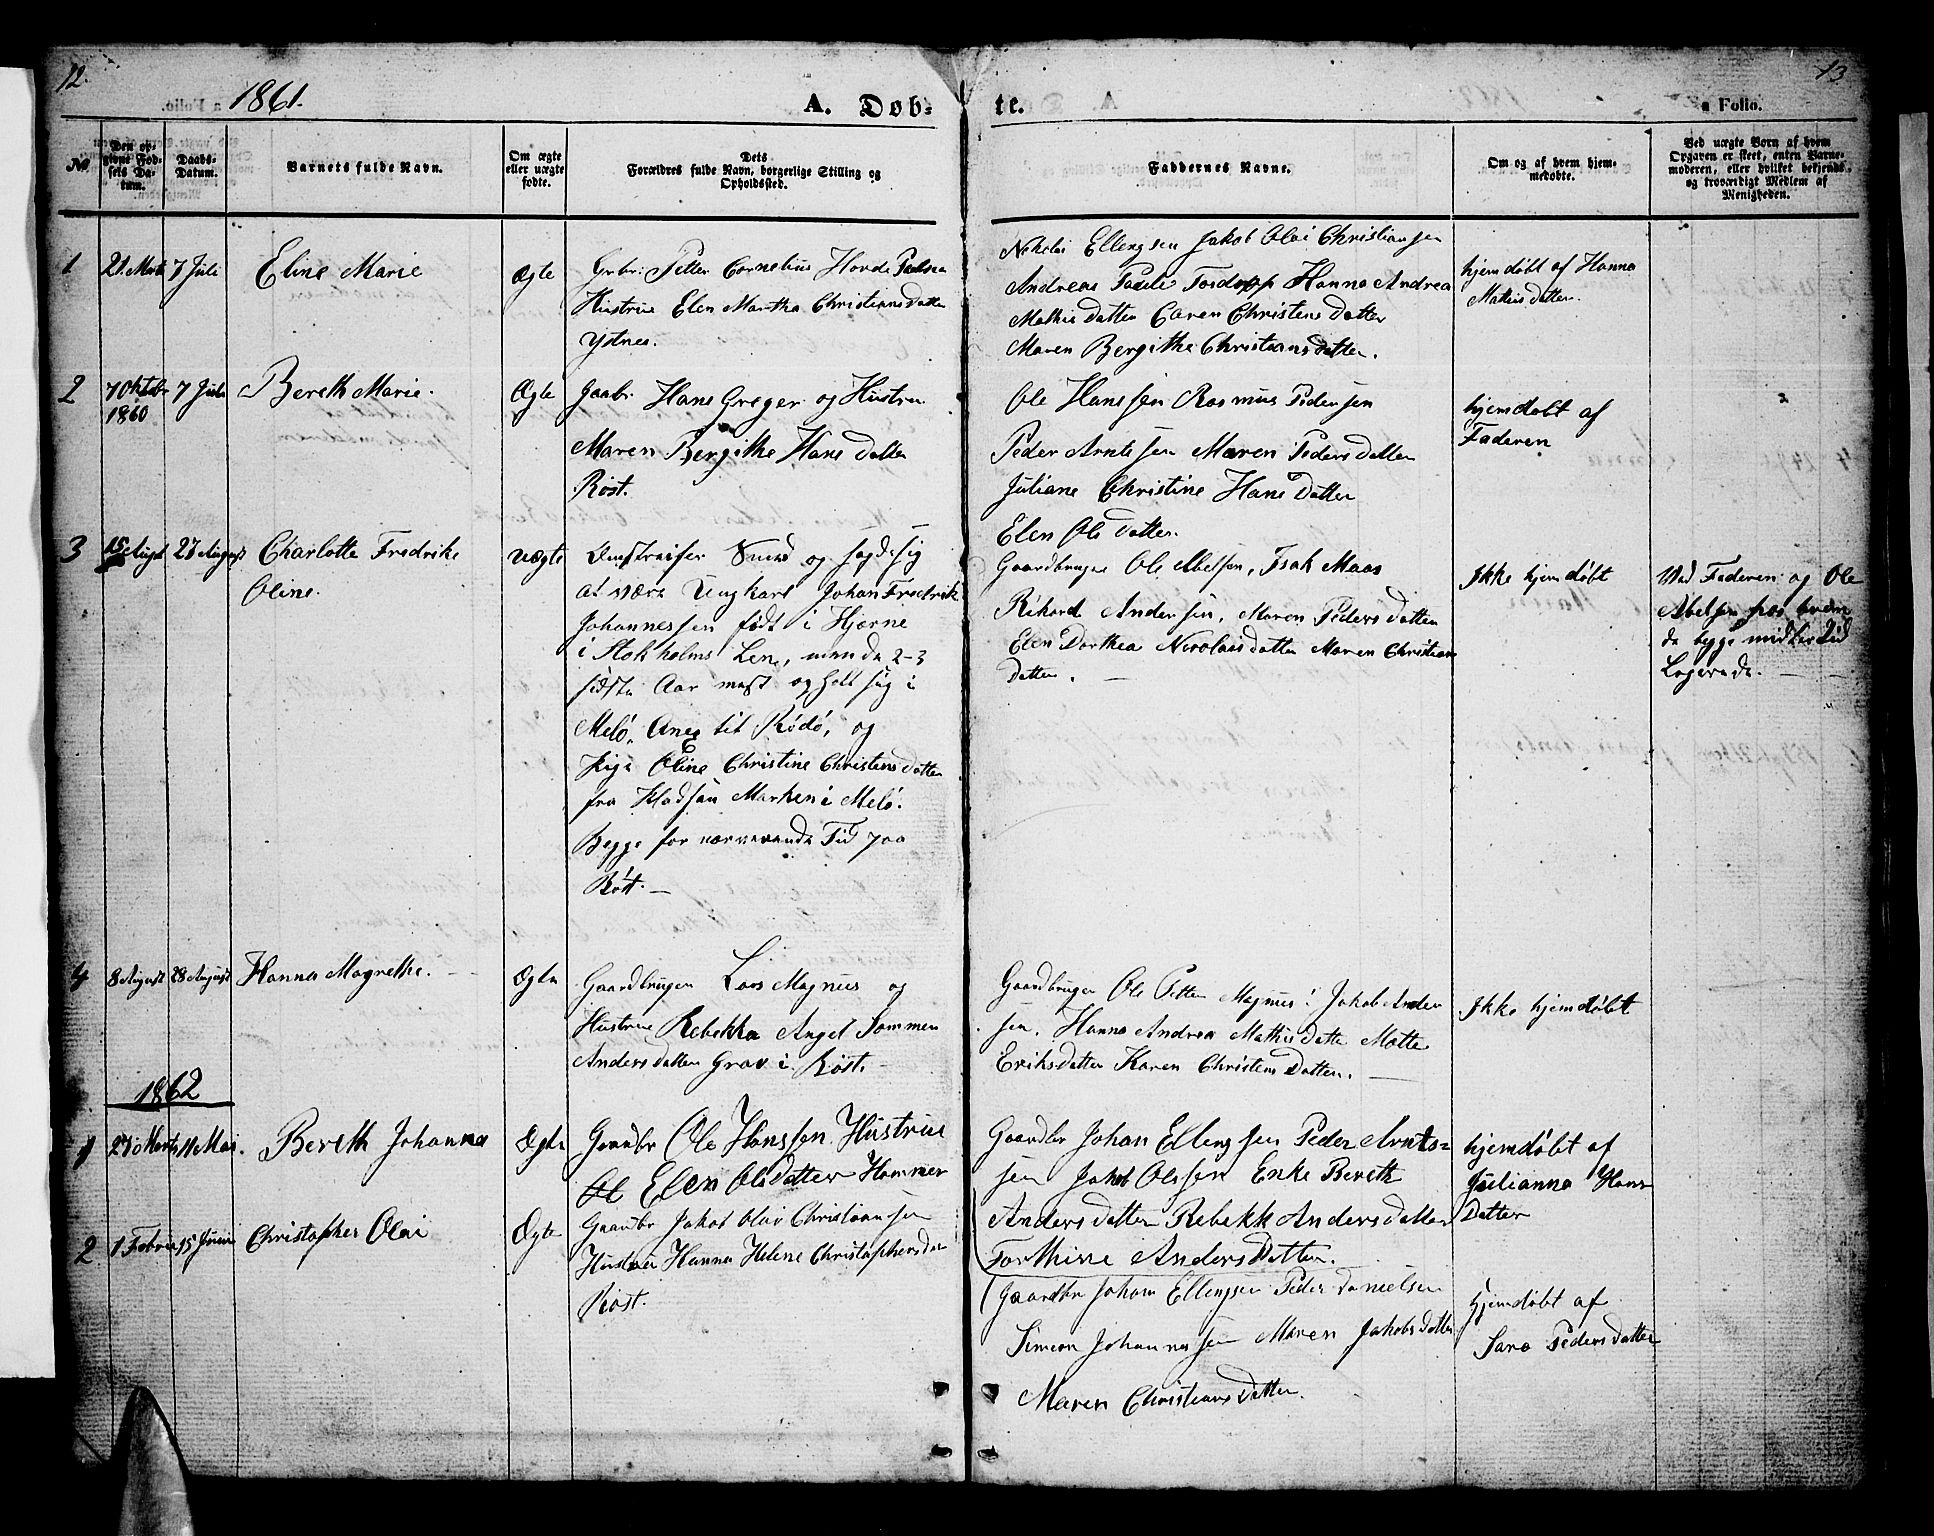 12.
1861.
A. Døb-
te.
a Folio.
13
No
Den op-
givne Fød-
sels Da-
tum.
Daabs-
Datum.
Barnets fulde Navn.
Om ægte
eller uægte
fødte.
Dets
Forældres fulde Navn, borgerlige Stilling og
Opholdssted.
Faddernes Navne.
Om og af hvem hjem-
medøbte.
Ved uægte Børn af hvem
Opgaven er skeet, enten Barne-
moderen, eller hvilket bekjendt
og troværdigt Medlem af
Menigheden.
1
21 Marts
7 Juli
Eline Marie
Ægte
Grbr: Petter Cornelius Horde
Hustrue Elen Martha Christians Datter
Ystnes.
Nikolai Ellengsen Jakob Olai Christiansen
Andreas Hanna Andrea
Mathis Datter Caren Christens Datter
Maren Bergithe Christians Datter.
hjemdøbt af Hanna
Mathis Datter.
2
7 Oktobr
1860
7 Juli
Bereth Marie.
Ægte
Gaabr. Hans Greger og Hustru
Maren Bergithe Hans Datter
Røst.
Ole Hanssen Rasmus Pedersen
Peder Arntsen Maren Peders Datter
Juliane Christine Hans Datter
Elen Ols Datter.
hjemdøbt af
Faderen
3
15 August
27 August
Charlotte Fredrike
Oline.
uægte
Omstreifer Smed og sagde sig
at være Ungkarl Johan Fredrik
Johannessen født i Hjerne
i Stokholms Len, men de 2-3
sidste Aar mest opholt sig i
Melø, Anex til Rødø, og
Pige Oline Christine Christens Datter
fra Marken i Melø.
Begge for nærværende Tid paa
Røst. —
Gaardbruger Ole Abelsen, Isak Maas
Rikard Andersen, Maren Peders Datter
Elen Dorthea Nicolais Datter Maren Christians
Datter. —
Ikke hjemdøbt
Ved Faderen og Ole
Abelsen hos hvem
de begge
Logerede. —
4
8 August
28 August
Hanna Magrethe.
Ægte
Gaardbruger Lars Magnus og
Hustrue Rebekka Angel Sommer
Anders Datter Grav i Røst. —
Gaardbruger Ole Petter Magnus: Jakob Ander
sen, Hanna Andrea Mathis Datter Matte
Eriks Datter Karen Christens Datter. —
Ikke hjemdøbt
1862
1
27 Marts
11 Mai.
Bereth Johanna
Ægte
Gaardbr Ole Hanssen Hustrue
Elen Ols Datter Hammer
Gaardbr Johan Ellengsen Peder Arnts=
sen Jakob Olssen Enke Bereth
Anders Datter Rebekk Anders Datter
Torthine Anders Datter.
hjemdøbt af
Julianna Hans
Datter
2
1 Februar
15 Juni
Christopher Olai
Ægte
Gaardbr Jakob Olai Christiansen
Hustrue Hanna Helene Christophersdatter
Røst.
Gaardbr Johan Ellengsen Peder Danielsen
Simeon Johannessen Maren Jakobs Datter
Maren Christians Datter.
hjemdøbt af
Sara Peders Datter